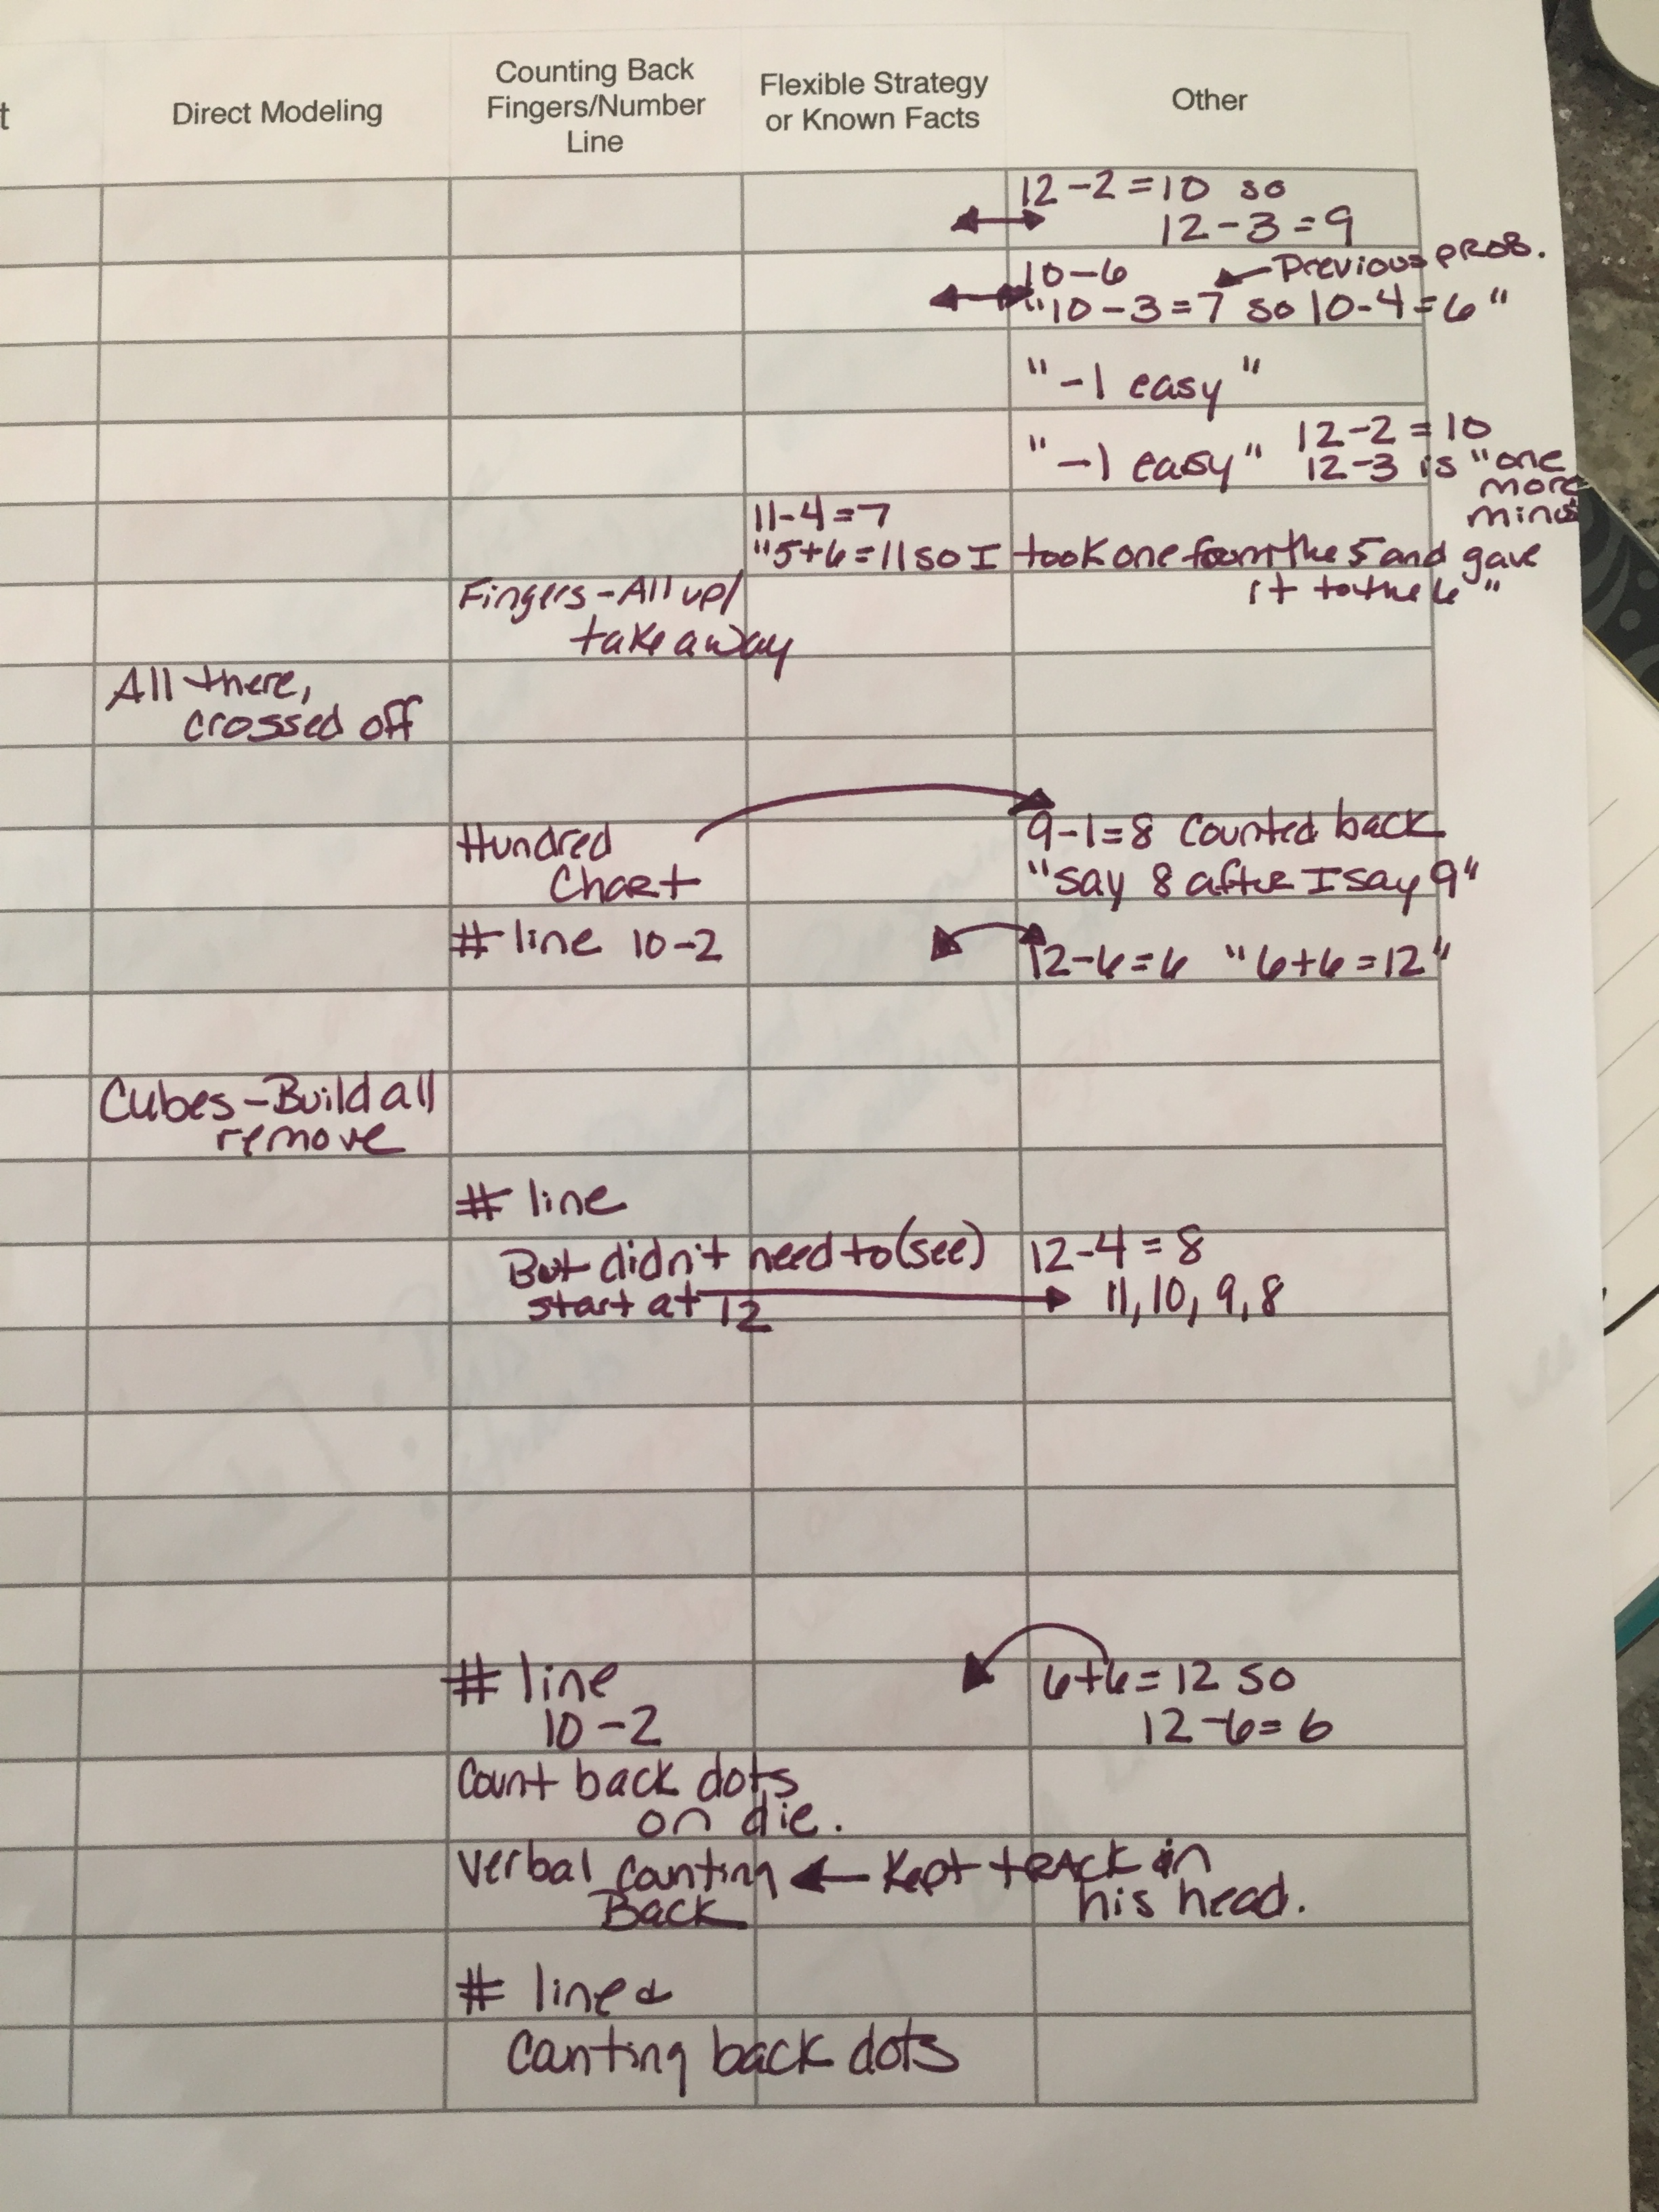 t
Direct Modeling
Counting Back
Fingers/Number
Line
Flexible Strategy
or Known Facts
Other
12-2=10 so
12-3=9
10-6
Previous PROB.
"10-3=7 so 10-4=6"
"-1 easy"
"-1 easy" 12-2=10
12-3 is "one
more
minus
11-4=7
"5+6=11 so I took one from the 5 and gave
it to the 6"
Fingers-All up/
take away
All there,
crossed off
Hundred
Chart
9-1=8 Counted back
"say 8 after I say 9"
# line 10-2
12-6=6 "6+6=12"
Cubes-Build all
remove
# line
But didn't need to (see)
start at 12
12-4=8
11, 10, 9, 8
# line
10-2
6+6=12 so
12-6=6
Count back dots
on die.
Verbal counting
Back
Kept tRACK in
his head.
# line &
canting back dots